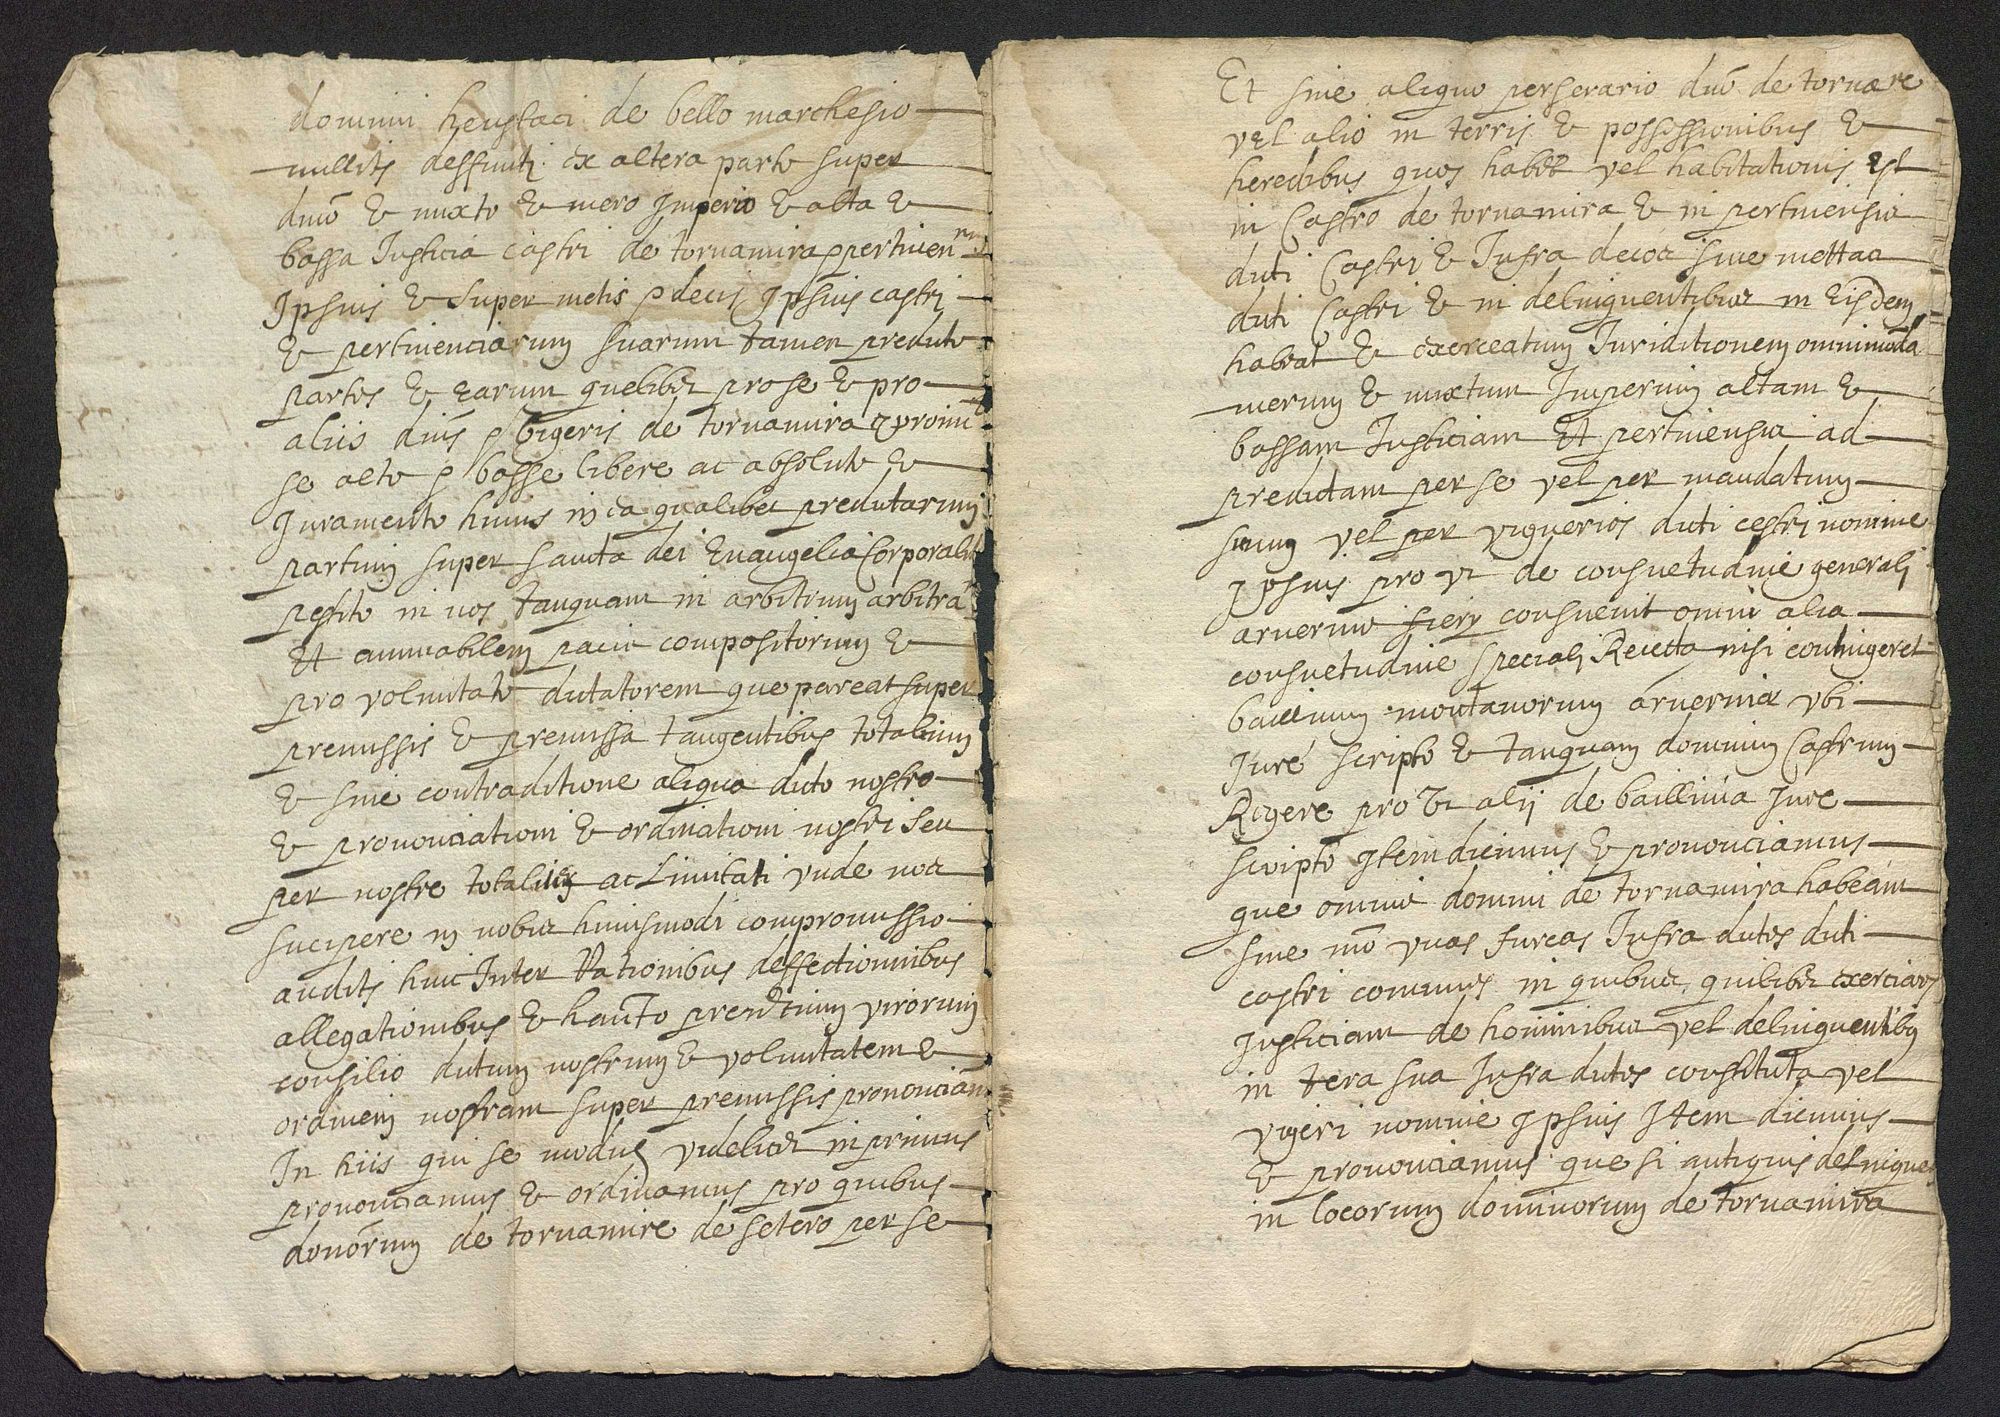 domini heustaci de bello marchesio
nullitis deffunti ex altera parte super
duio & mixto & mero Imperio & alta &
bassa Justicia castri de tornamira p pertinen
Ipsius & super metis p decis Ipsius castri
& pertinenciarum suarum tamen predute
partes & earum quelibet pro se & pro
aliis duis p vigeris de tornamira
se alte p basse libere ac absolute &
Juramento huius in ca qualibet predutarum
partium super sancta dei Evangelia Corporalit
prestito in nos tanquam in arbitrum arbitra
Et amicabilem pacis compositorum &
pro voluntate dutatorem que pareat super
premissis & premissa tangentibus totalium
& sine contraditione aliqua duto nostro
& prononciationi & ordinationi nostri seu
per nostre totaliter ac Limitati unde nos
sucipere in nobis huiusmodi compromissio
auditis huic Inter Rationibus deffectionnibus
allegationibus & prudentium virorum
consilio dutum nostrum & voluntatem &
ordinem nostram super premissis prononciam
In hiis qui se modus videlicet in primis
prononciamus & ordinamus pro quibus
donorum de tornamire de setero per se
Et sine aliquo perserario duo de tornare
vel alio in terris & possessionibus &
heredibus quos habet vel habitationis est
in Castro de tornamira & in pertinensia
duti Castri & Infra decos sive mettas
duti Castri & in delinquentibus in eisdem
habeat & exerceatum Juriditionem omnimoda
merum & mixtum Imperium altam &
bassam Justiciam Et pertinensia ad
predutam per se vel per mandatum
suum vel per viguerios duti castri nomine
Ipsius pro vt de consuetudine generali
arvernie fiery consuevit omni alia
consuetudine speciali Recetta nisi contingeret
baillinum montanorum arvernie vbi
Jure scripto & tanquam dominum Castrum
Rigere pro vt alij de baillivia Jure
scripto Item dicimus & prononciamus
que omnie domini de tornamira habeant
sive mo vnas furcas Infra dutos duti
castri comunes in quibus quilibet exerciat
Justiciam de hominibus vel delinquentibus
in tera sua Infra dutos constituta vel
vigeri nomine Ipsius Item dicimus
& prononciamus que si antiquis delnique
in locorum dominorum de tornamira